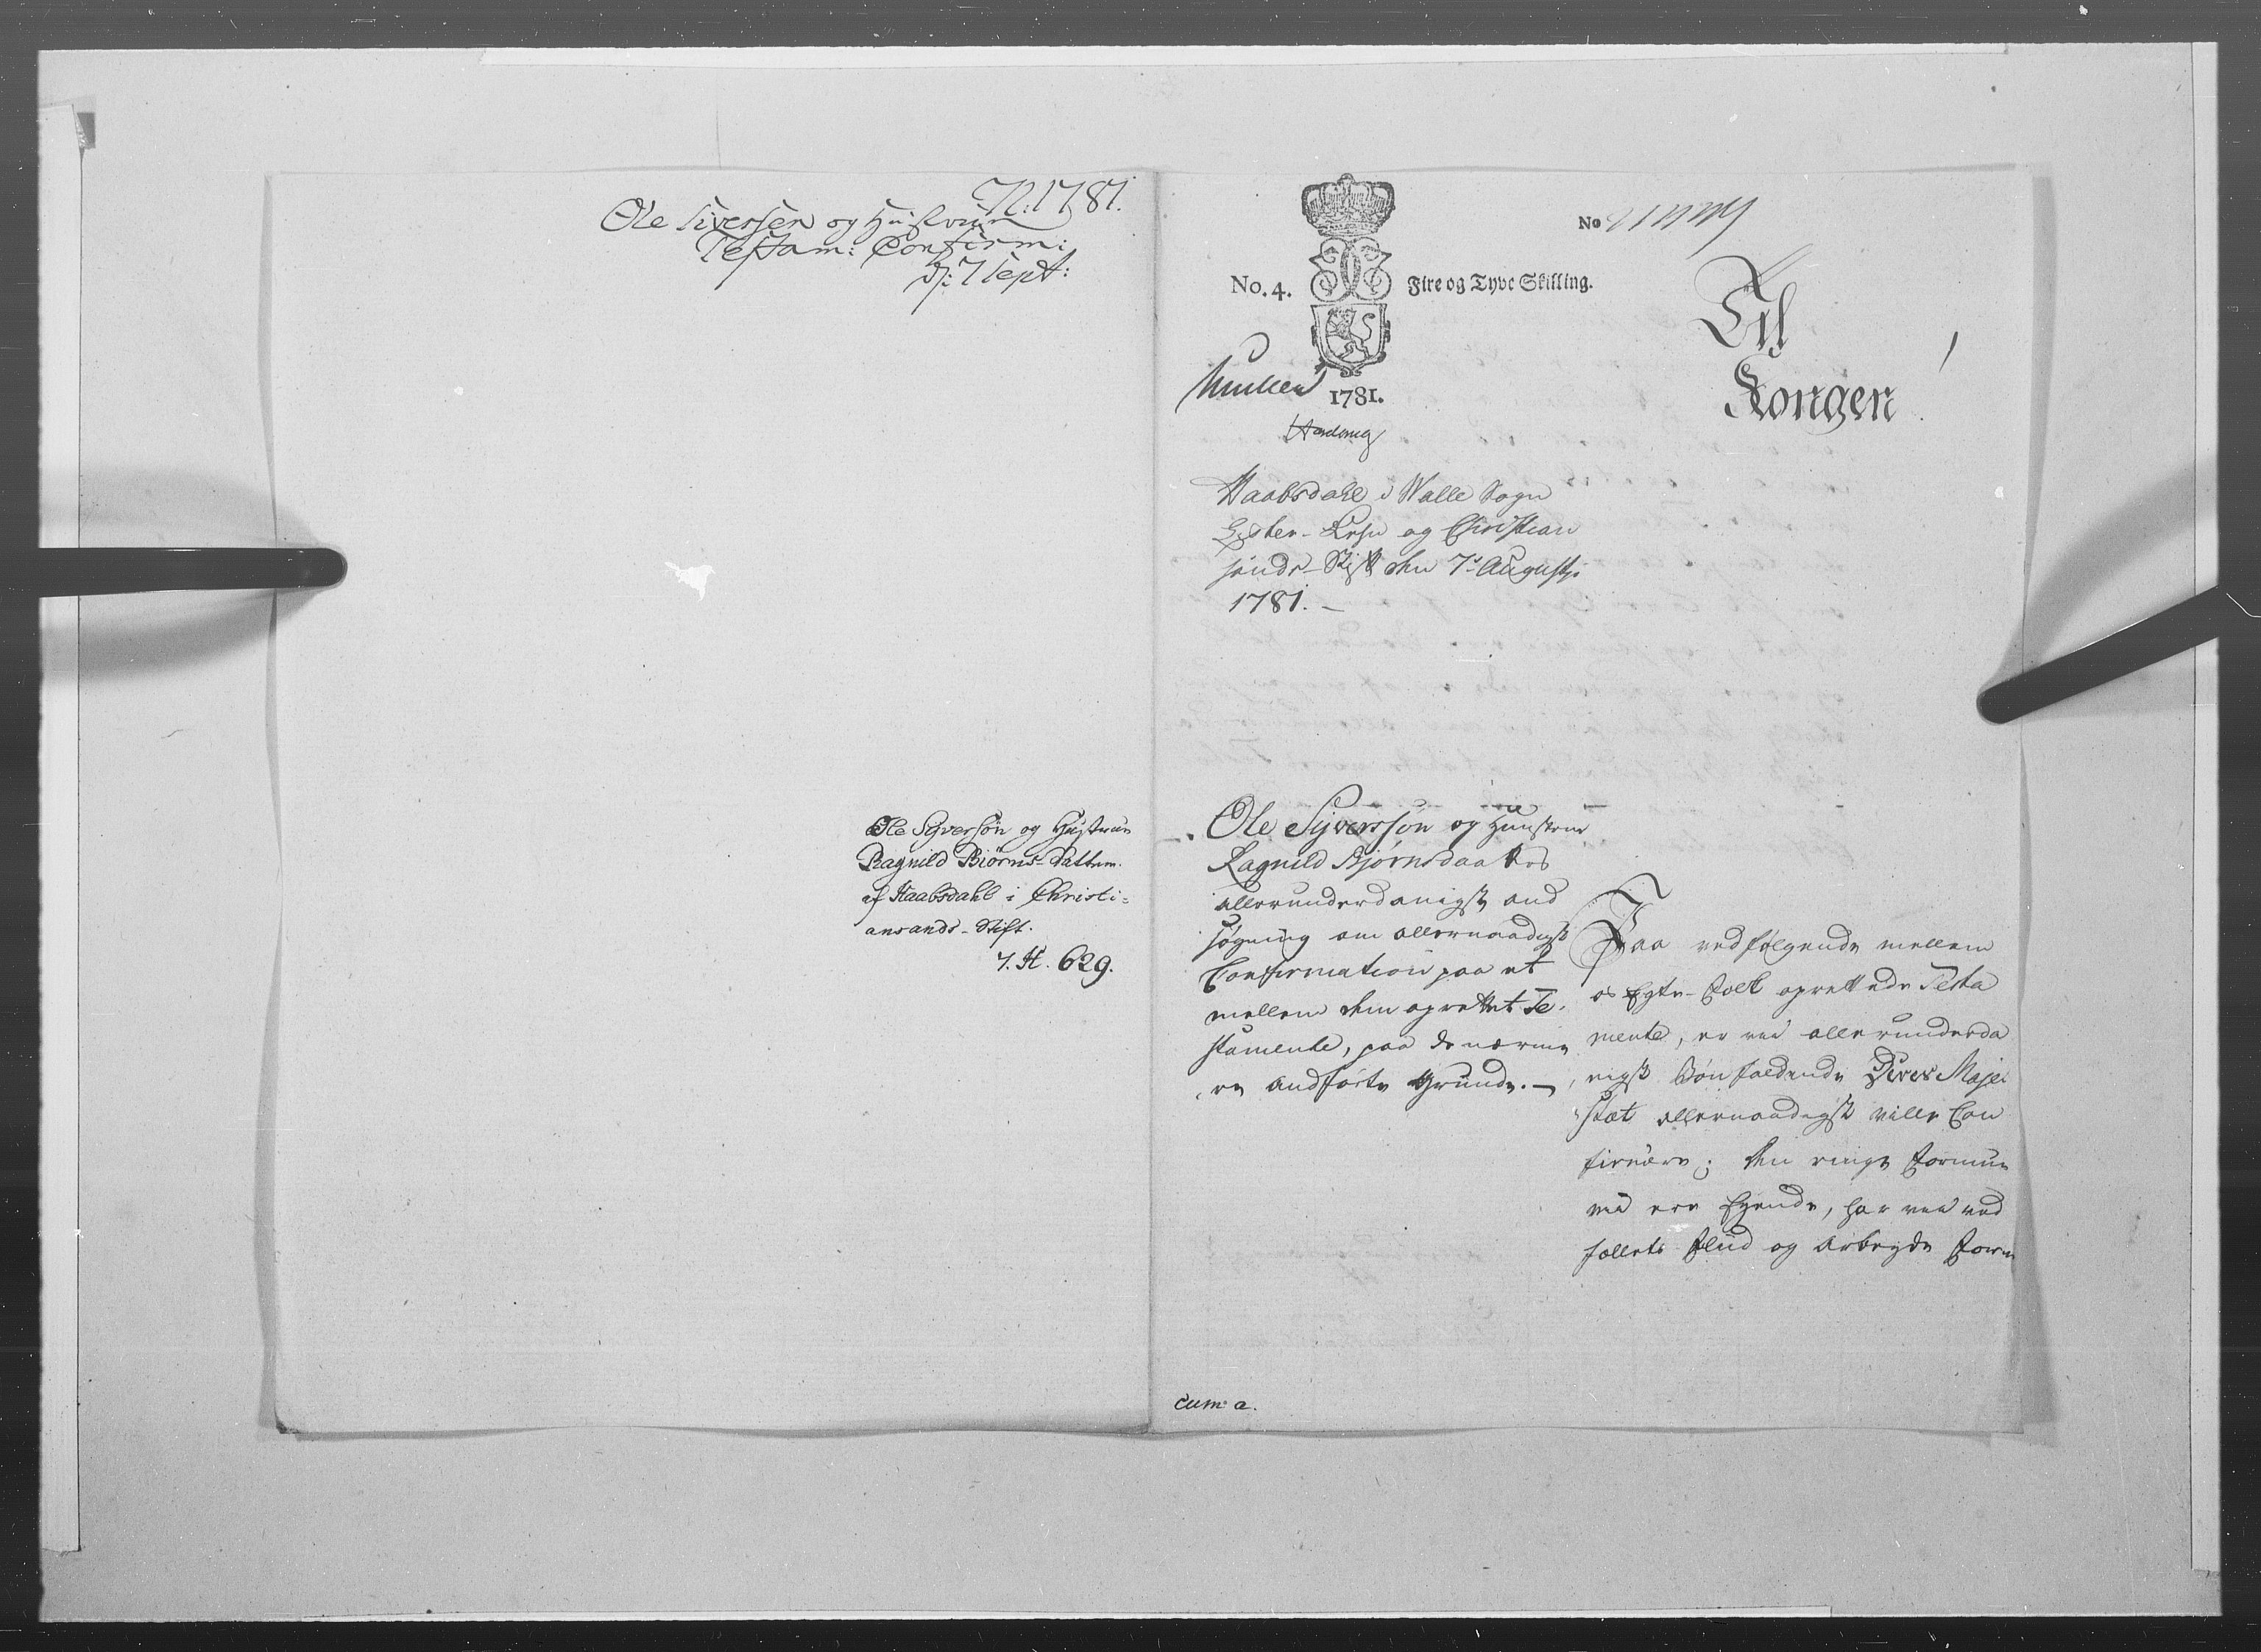 N: 1781.
Ole Siversen og Hustrue
Testam: Confirm:
D: 7 Sept:
Ole Syversøn og Hustrue
Ragnild Biørns-Datter
af Haabsdahl i Christi=
ansands-Stift.
7. H. 629.
No
No. 4. Fire og Tyve Skilling.
Til
Kongen
1781.
Haabsdahl i Walle Sogn
og Christian
sands-Stift den 7de Augusti
1781. –
Ole Syversøn og Hunstrue
Ragnild Bjørnsdaatter
allerunderdanigst and
søgning om allernaadigst
Confirmation paa et
mellem dem oprettet Te-
stamente, paa de nærme
re andførte Grunde. –
Paa vedfølgende mellem
os Egte-Folk oprettede Testa
mente, er vii allerunderda
nigst Bønfaldende Deres Maje
stæt allernaadigst ville Con
firmere; den ringe Formue
vii ere Eyende, har vii ved
fælleds Fliid og Arbeyde
cum a.